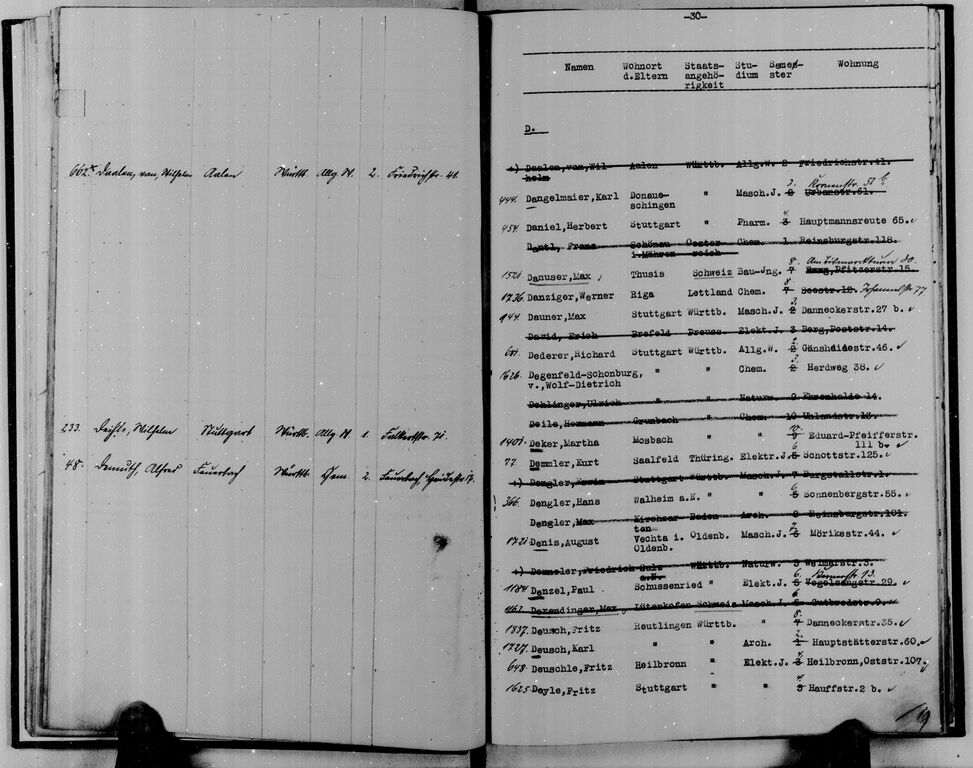 662 Daalen, van, Wilhelm Aalen Württ. Allg. W. 2. Friedrichstr. 41.
233. Stuttgart Württ. Allg. W. 1. Falkertstr. 71.
48. Demuth, Alfred Feuerbach Württ. Chem. 2. Feuerbach,
-30-
Namen Wohnort d.Eltern Staats-angehö-rigkeit Stu-dium Semester Wohnung
D.
+) Daalen,van,Wil Aalen Württb. Allg.W. 2 Friedrichstr.41.
helm
3. 51
444. Dangelmaier,Karl Donaue- " Masch.J. 2 Urbanstr.61.
schingen
454. Daniel,Herbert Stuttgart " Pharm. 3 4. Hauptmannsreute 65.
Franz Schönau Oester Chem. 1 Reinsburgstr.118.
i.Mähren reich
8.
1521. Danuser,Max Thusis Schweiz Bau-Jng. 7 Pfitzerstr.15.
8.
1736. Danziger,Werner Riga Lettland Chem. 7 Seestr.12. Johannesstr 77.
3.
944. Dauner,Max Stuttgart Württb. Masch.J. 2 Danneckerstr.27 b.
David, Erich Krefeld Preuss. Elekt.J. 3 Berg,Poststr.14.
Dederer,Richard Stuttgart Württb. Allg.W. 2 Gänsheidestr.46.
3.
1626. Degenfeld-Schonburg, " " Chem. 2 Herdweg 38.
v.,Wolf-Dietrich
Dehlinger,Ulrich " " Naturw. 9 Ehrenhalde 14.
Deile,Hermann Grunbach " Chem. 10 Uhlandstr.13.
10.
1401. Deker,Martha Mosbach " " 9 Eduard-Pfeifferstr.
111 b.
6
77. Demmler,Kurt Saalfeld Thüring. Elektr.J. 5 Schottstr.125.
+) Dengler,Erwin Stuttgart Württb. Masch.J. 7 Burgstallstr.1.
6
366. Dengler,Hans Walheim a.N. " " 5 Sonnenbergstr.55.
Dengler,Max Kirchzar Baden Arch. 8 Reinsburgstr.101.
ten
1721. Denis,August Vechta i. Oldenb. Masch.J. 6 7. Mörikestr.44.
Oldenb.
+) Friedrich Sulz Württb. Naturw. 3 Weimarstr.3.
a.N.
6. 13.
1184. Denzel,Paul Schussenried " Elekt.J. 5 Vogelsangstr.29.
6
463. Derendinger,Max Lüterkofen Schweiz Masch.J. 5 Gutbrodstr.9.
8.
1837. Deusch,Fritz Reutlingen Württb. " 7 Danneckerstr.35.
2.
1727. Deusch,Karl " " Arch. 1 Hauptstätterstr.60.
4.
648. Deuschle,Fritz Heilbronn " Elekt.J. 3 Heilbronn,Oststr.107.
4.
1625. Deyle,Fritz Stuttgart " " 3 Hauffstr.2 b.
19